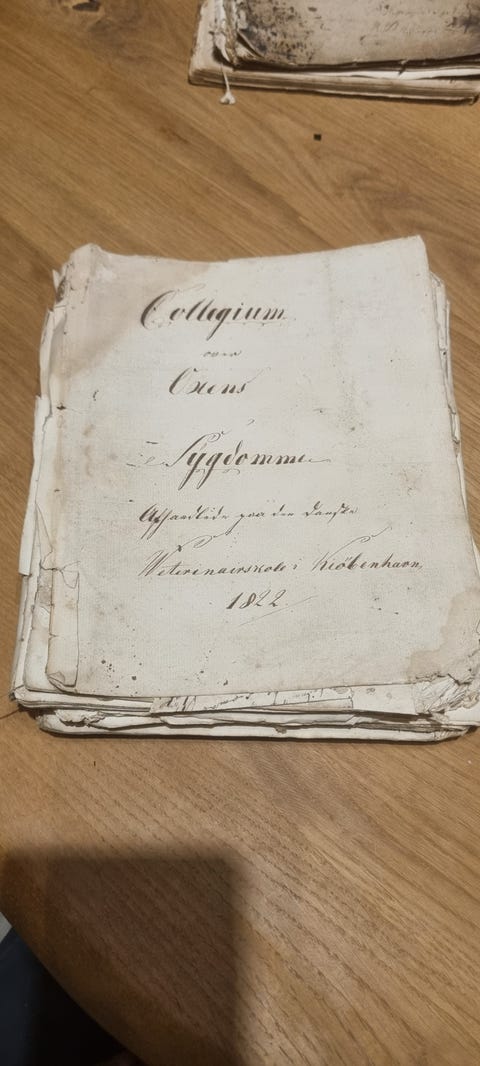 Collegium
over
Oxens
Sygdomme
Afhandlede paa den danske
Veterinairskole i Kiöbenhavn
1822